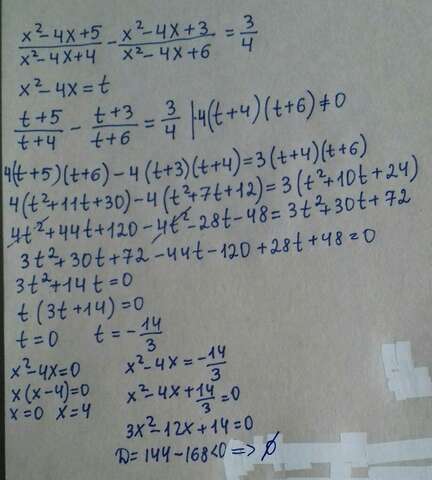 (x²-4x+5)/(x²-4x+4) - (x²-4x+3)/(x²-4x+6) = 3/4
x²-4x=t
(t+5)/(t+4) - (t+3)/(t+6) = 3/4 |·4(t+4)(t+6)≠0
4(t+5)(t+6)-4(t+3)(t+4)=3(t+4)(t+6)
4(t²+11t+30)-4(t²+7t+12)=3(t²+10t+24)
4t²+44t+120-4t²-28t-48=3t²+30t+72
3t²+30t+72-44t-120+28t+48=0
3t²+14t=0
t(3t+14)=0
t=0 t=-14/3
x²-4x=0 x²-4x=-14/3
x(x-4)=0 x²-4x+14/3=0
x=0 x=4 3x²-12x+14=0
D=144-168<0=>∅